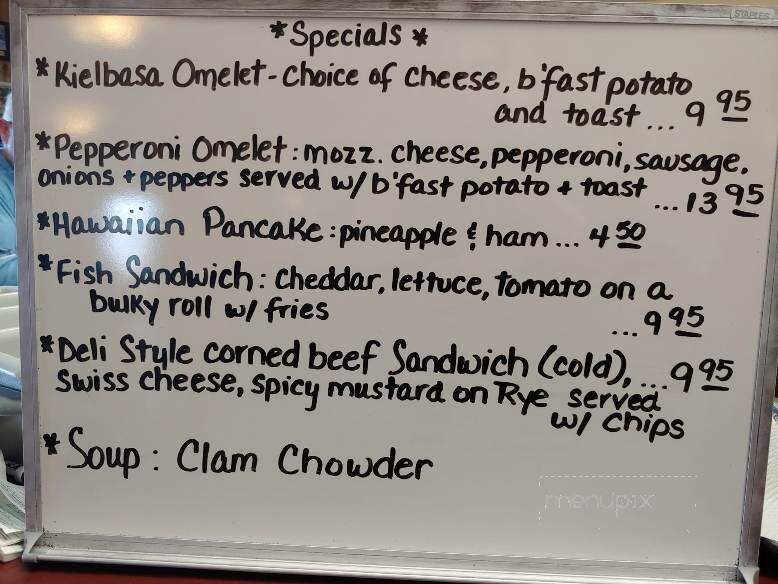 STAPLES
*Specials*
*Kielbasa Omelet-choice of cheese, b'fast potato
and toast... 9 95
*Pepperoni Omelet: mozz. cheese, pepperoni, sausage,
onions + peppers served w/ b'fast potato + toast ... 13 95
*Hawaiian Pancake: pineapple & ham... 4 50
*Fish Sandwich: cheddar, lettuce, tomato on a
bulky roll w/ fries ... 9 95
*Deli Style corned beef Sandwich (cold), ... 9 95
Swiss cheese, spicy mustard on Rye served
w/ chips
*Soup: Clam Chowder
menupix